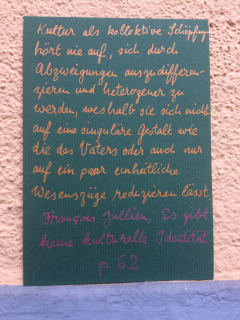 Kultur als kollektive Schöpfung
hört nie auf, sich durch
Abzweigungen auszudifferen-
zieren und heterogener zu
werden, weshalb sie sich nicht
auf eine singuläre Gestalt wie
die des Vaters oder auch nur
auf ein paar einheitliche
Wesenszüge reduzieren lässt
François Jullien, Es gibt
keine kulturelle Identität
p. 62